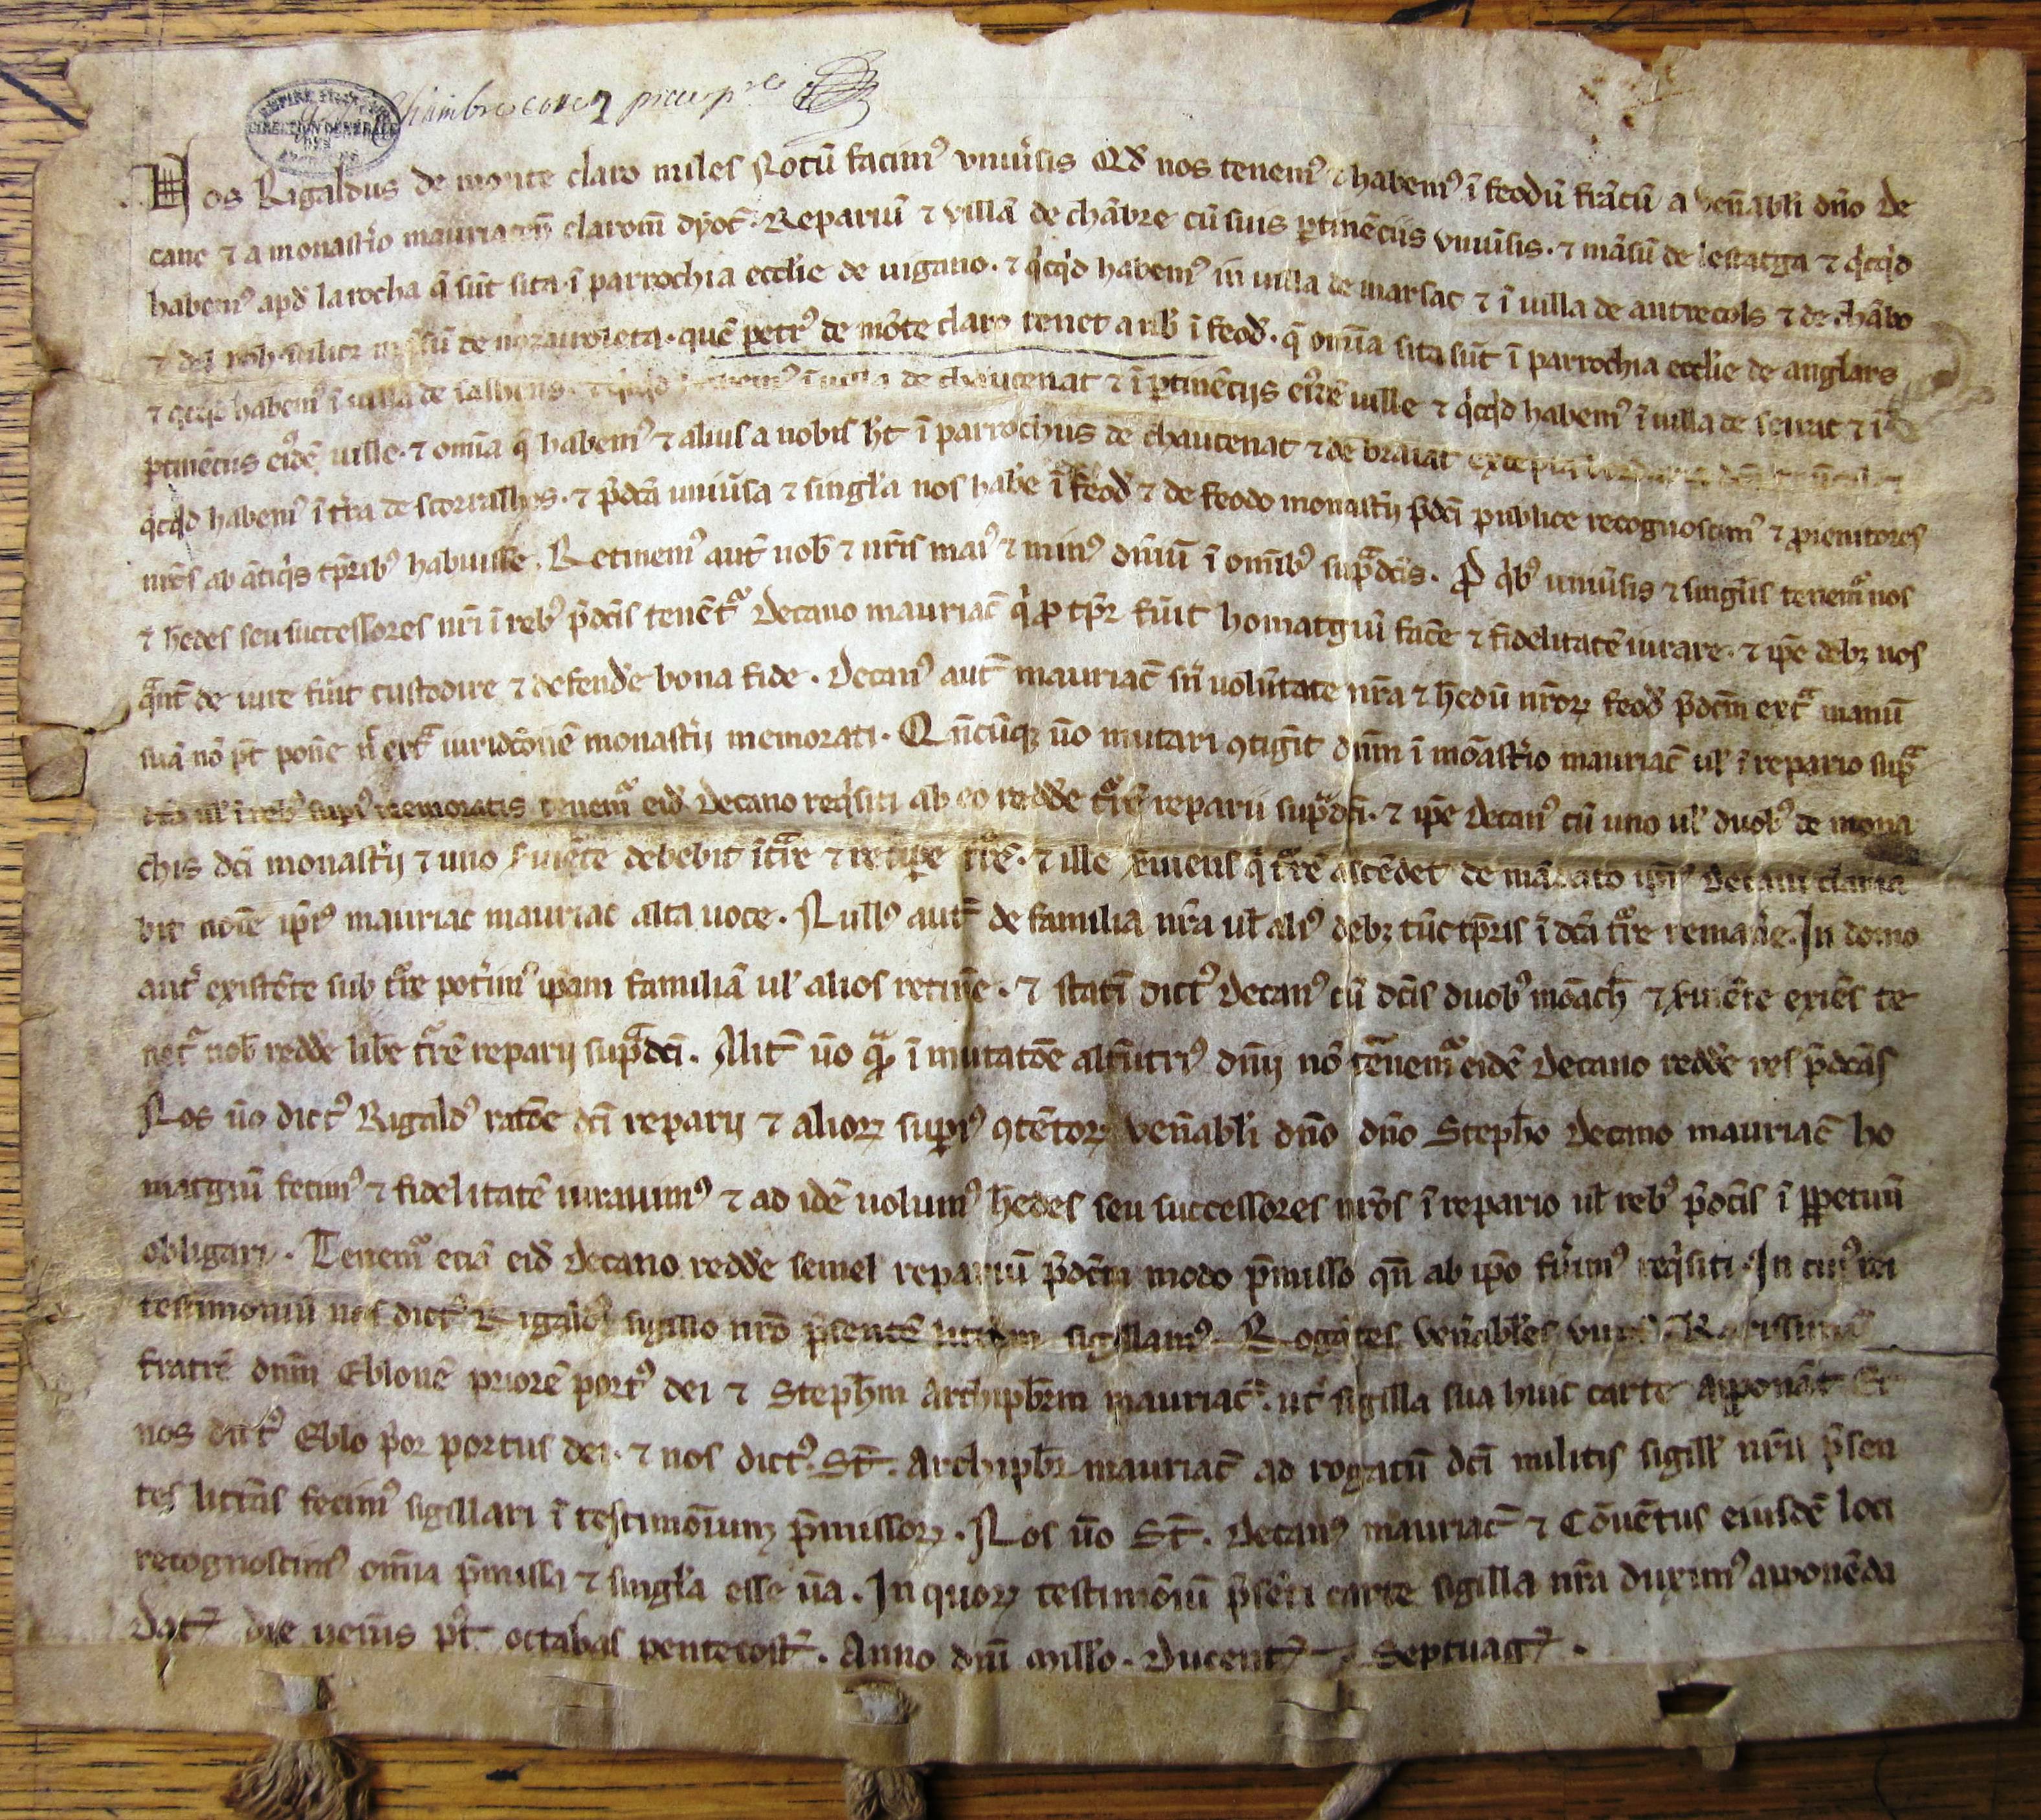 EMPIRE FRANÇAIS DIRECTION GÉNÉRALE DES
Chambre piece
Nos Rigaldus de monte claro miles Notū facimꝰ vniũsis Qđ nos tenemꝰ ⁊ habemꝰ ĩ feodũ frãcũ a veñabli dño De
cano ⁊ a monastĩo mauriacñ claromñ dyoc̃. Repariũ ⁊ villã de chãbre cũ suis ꝑtinẽciis vniũsis. ⁊ mãsũ de lestatga ⁊ q̃cq̃d
habemꝰ apđ la rocha q̃ sũt sita ĩ parrochia ecclie de uigano. ⁊ q̃cq̃d habemꝰ in uilla de marsac ⁊ ĩ uilla de autrecols ⁊ de chãbo
⁊ quẽ petrꝰ de mõte claro tenet a nob̃ ĩ feođ. q̃ omĩa sita sũt ĩ parrochia ecclie de anglars
⁊ q̃cq̃d habemꝰ ĩ uilla de ĩ uilla de chaucenat ⁊ ĩ ꝑtinẽcijs eiꝰdẽ uille ⁊ q̃cq̃d habemꝰ ĩ uilla de seurac ⁊ ĩ
ꝑtinẽciis eiꝰdẽ uille. ⁊ omĩa q̃ habemꝰ ⁊ alius a nobis h̃t ĩ parrochiis de chaucenat ⁊ de braiac
q̃cq̃d habemꝰ ĩ tr̃a de scorralhos. ⁊ p̃dc̃a uniũsa ⁊ singl̃a nos habẽ ĩ feođ ⁊ de feodo monast̃ij p̃dc̃i publice recognoscimꝰ ⁊ ꝓgenitores
nr̃os ab ãtiq̃s tp̃ribꝰ habuisse. Retinemꝰ aut̃ nob̃ ⁊ nr̃is maiꝰ ⁊ minꝰ dñiũ ĩ omĩbꝰ sup̃dc̃is. P̃ q̃bꝰ uniũsis ⁊ singl̃is tenemᷣ nos
⁊ h̃edes seu successores nr̃i ĩ rebꝰ p̃dc̃is tenẽtᷣ Decano mauriac̃ q̃ ꝓ tp̃r fũit homatgiũ fac̃e ⁊ fidelitatẽ iurare. ⁊ ip̃e debꝫ nos
q̃nt̃ de iure fũit custodire ⁊ defendẽ bona fide. Decanꝰ aut̃ mauriac̃ sñ uolũtate nr̃a ⁊ h̃edũ nr̃oꝝ feođ p̃dc̃m ext̃ manũ
suã nõ pt̃ pon̄e ñ ext̃ iuridc̃onẽ monast̃ij memorati. Qñcũqꝫ ũo mutari ꝯtig̃it dñm ĩ mõast̃io mauriac̃ ul̃ ĩ repario sup̃
dc̃o ul̃ ĩ rebꝰ supiꝰ memoratis tenemᷣ eiđ Decano req̃siti ab eo reddẽ tᷣrẽ reparii sup̃dc̃i. ⁊ ip̃e Decanꝰ cũ uno ul̃ duobꝰ de mona
chis dc̃i monast̃ij ⁊ uno s̃uiẽte debebit ĩt̃re ⁊ recipe tᷣrẽ. ⁊ ille s̃uiens q̃ tᷣrẽ ascẽdet de mãdato ip̃iꝰ Decani clama
bit noĩe ip̃iꝰ mauriac mauriac alta uoce. Nullꝰ aut̃ de familia nr̃a ul̃ aliꝰ debꝫ tũc tp̃ris ĩ dc̃a tᷣre remañe. In domo
aut̃ existẽte sub tᷣre pot̃imꝰ ip̃am familiã ul̃ alios retinẽ. ⁊ statĩ dict̃ꝰ Decanꝰ cũ dc̃is duobꝰ mõach̃ ⁊ s̃uiẽte exiẽs te
netᷣ nob̃ reddẽ lib̃e tᷣrẽ reparij sup̃dc̃i. Alit̃ ũo q̃ ĩ mutatõe alt̃utriꝰ dñij nõ tenemᷣ eidẽ Decano reddẽ res p̃dc̃as
Nos ũo dict̃ꝰ Rigaldꝰ ratõe dc̃i reparij ⁊ alioꝝ supiꝰ ꝯtẽtoꝝ veñabli dño dño Steph̃o Decano mauriac̃ ho
matgiũ fecimꝰ ⁊ fidelitatẽ iurauimꝰ ⁊ ad idẽ uolumꝰ h̃edes seu successores nr̃os ĩ repario ul̃ rebꝰ p̃dc̃is ĩ ꝑpetuũ
obligari. Tenemᷣ eciã eiđ Decano reddẽ semel repariũ p̃dc̃m modo p̃misso qñ ab ip̃o fũimꝰ req̃siti. In cuiꝰ rei
testimoniũ nos dict̃ꝰ Rigaldꝰ sigillo nr̃o p̃sentẽ sigillamꝰ. Rogãtes veñabiles
fratrẽ dñm Eblonẽ priorẽ portꝰ dei ⁊ Steph̃m Archipb̃rm mauriac̃. ut sigilla sua huic carte apponãt Et
nos dict̃ꝰ Eblo p̃or portus dei. ⁊ nos dict̃ꝰ St̃. Archipb̃r mauriac̃ ad rogatũ dc̃i militis sigill̃ nr̃ii p̃sen
tes litt̃as fecimꝰ sigillari ĩ testimõium p̃missoꝝ. Nos ũo St̃. Decanꝰ mauriac̃ ⁊ Cõuẽtus eiusdẽ loci
recognoscimꝰ omĩa p̃missa ⁊ singl̃a esse ũa. In quoꝝ testimõiũ p̃sẽti carte sigilla nr̃a duximꝰ apponẽda
Dat̃ die ueñis p̃t octabas pentecost̃. Anno dñi mill̃o. Ducent̃ Septuag̃.